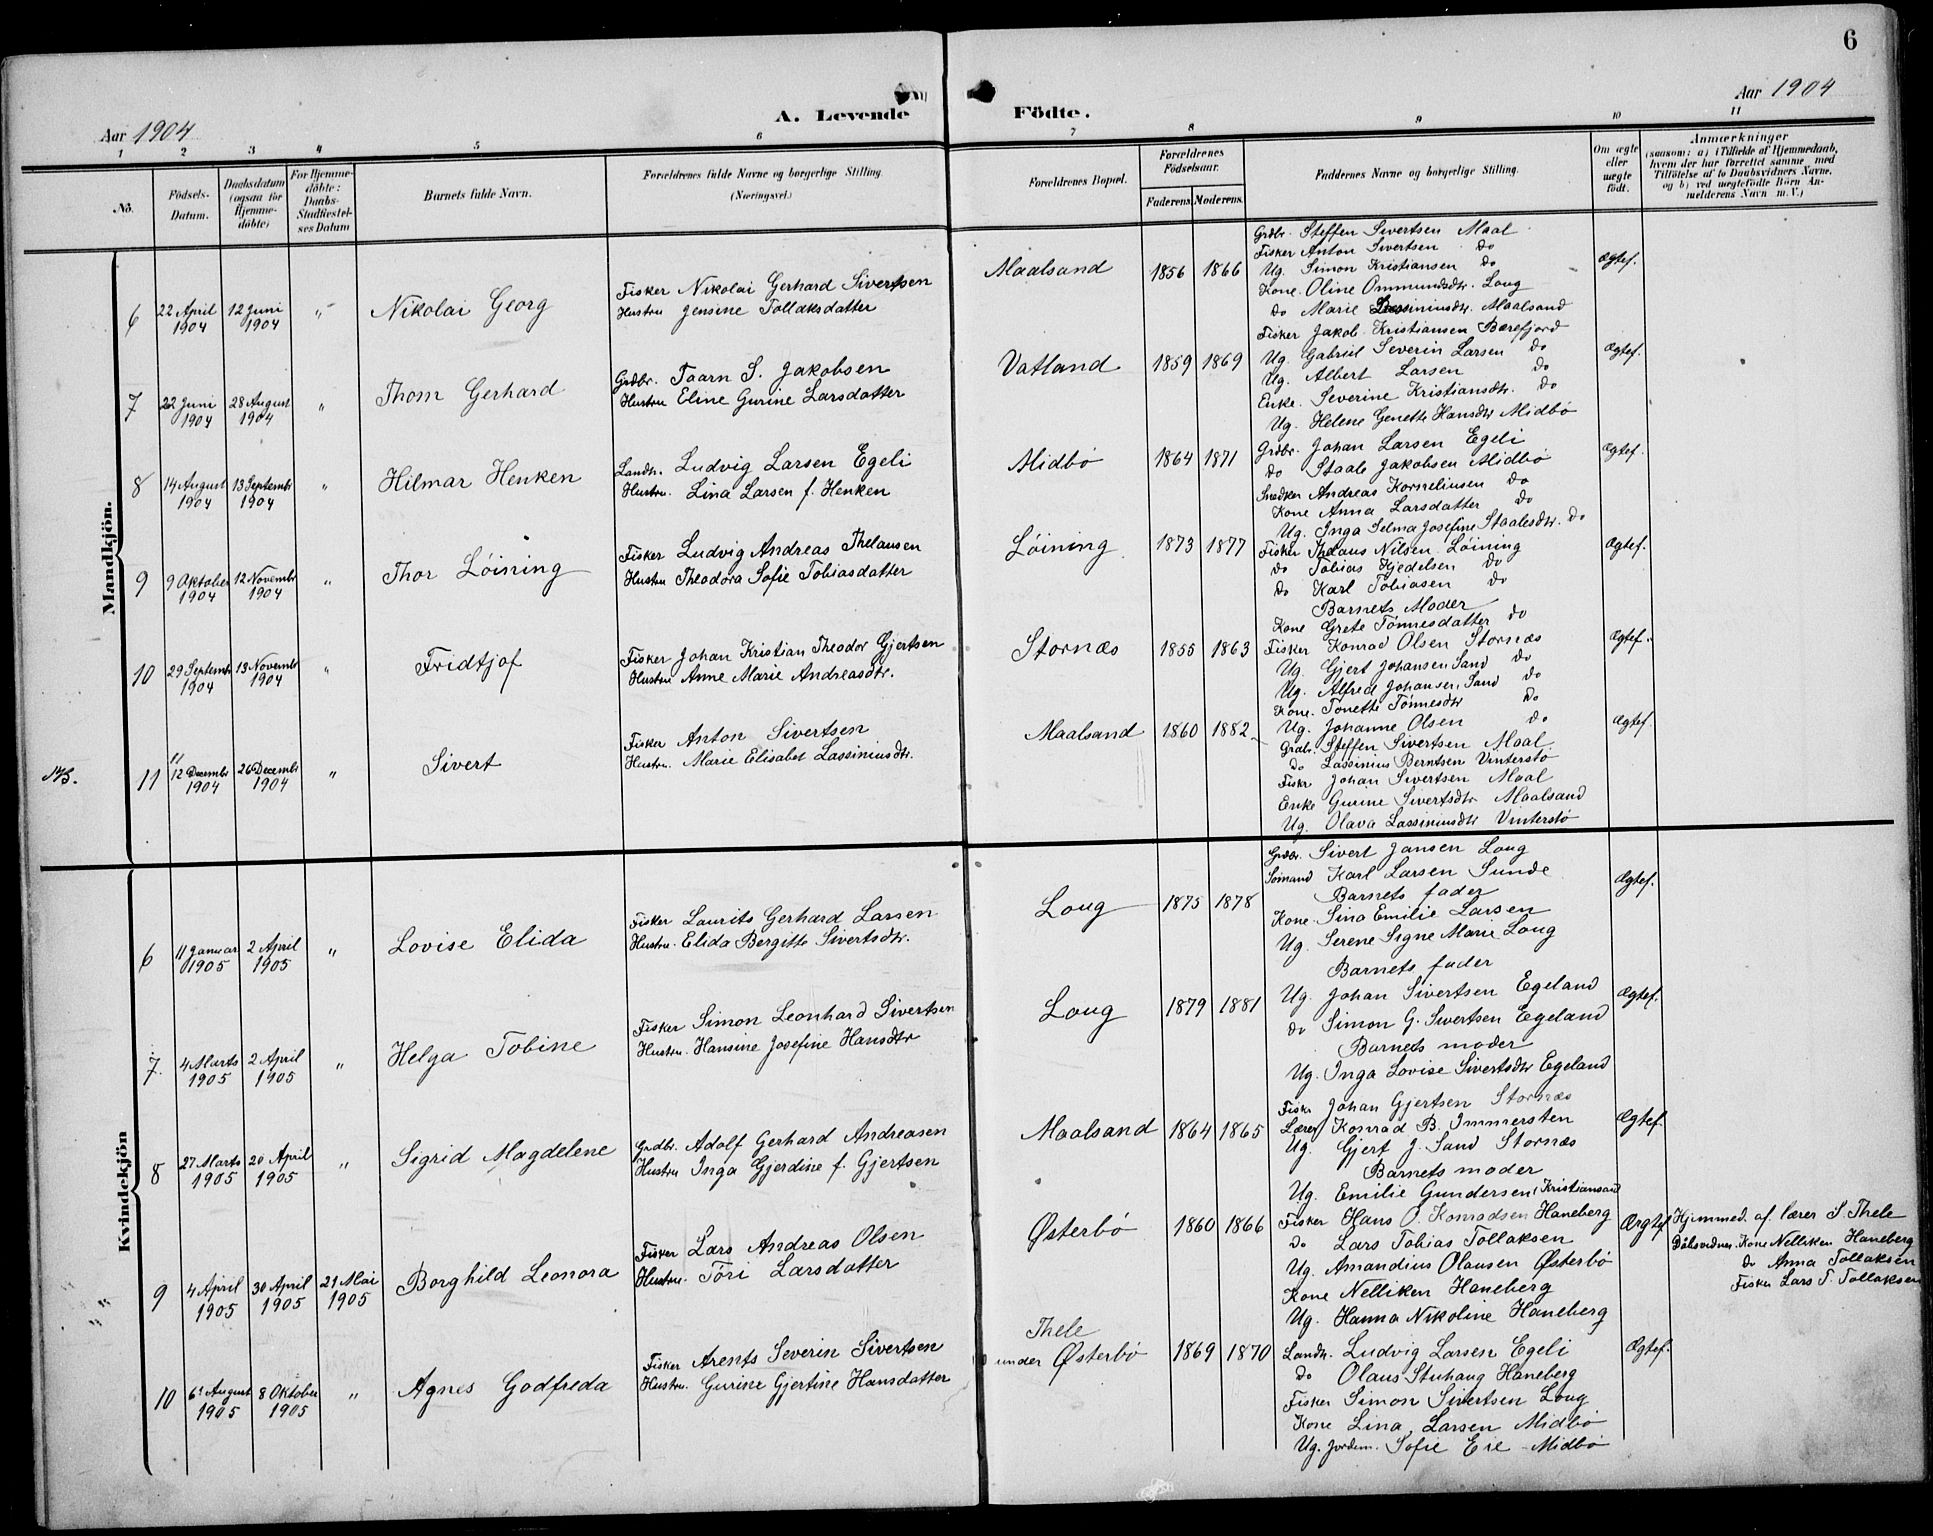 6
Aar 1904
A. Levende Födte.
Aar 1904
1 2 3 4 5 6 7 8 9 10 11
No.
Födsels-Datum.
Daabsdatum (ogsaa for Hjemmedöbte)
For Hjemmedöbte: Daabs-Stadfæstelses Datum
Barnets fulde Navn.
Forældrenes fulde Navne og borgerlige Stilling. (Næringsvei.)
Forældrenes Bopæl.
Forældrenes Födselsaar. Faderens Moderens.
Faddernes Navne og borgerlige Stilling.
Om ægte eller uægte födt.
Anmærkninger (saasom: a) i Tilfælde af Hjemmedaab, hvem der har forrettet samme, med Tilföielse af to Daabsvidners Navne, og b) ved uægtefödte Börn Anmelderens Navn m. V.)
Mandkjön.
6 22 April 1904 12 Juni 1904 " Nikolai Georg
Fisker Nikolai Gerhard Sivertsen
Hustru Jensine Tollaksdatter
Maalsand 1856 1866
Grdbr. Steffen Sivertsen Maal
Fisker Anton Sivertsen do
Ug. Simon Kristiansen do
Kone. Oline Ommundsdtr. Loug
do Marie Lassiniusdtr. Maalsand
Ægtef.
7 22 Juni 1904 28 August 1904 " Thom Gerhard
Grdbr. Taarn S. Jakobsen
Hustru Eline Gurine Larsdatter
Vatland 1859 1869
Fisker Jakob Kristiansen Barefjord
Ug. Gabriel Severin Larsen do
Ug. Albert Larsen do
Enke. Severine Kristiansdtr. do
Ug. Helene Genette Hansdtr Midbö
Ægtef.
8 14 August 1904 13 Septembr 1904 " Hilmar Henken
Landh. Ludvig Larsen Egeli
Hustru. Lina Larsen f. Henken
Midbö 1864 1871
Grdbr. Johan Larsen Egeli
do Staale Jakobsen Midbö
Snedker Andreas Korneliusen do
Kone Anna Larsdatter do
Ug. Inga Selma Josefine Staalesdtr. do
Ægtef.
9 9 Oktober 1904 12 Novembr 1904 " Thor Löining
Fisker Ludvig Andreas Thelausen
Hustru Theodora Sofie Tobiasdatter
Löining 1873 1877
Fisker Thelaus Nilsen Löining
do Tobias Kjedelsen do
do Karl Tobiasen do
Barnets Moder
Kone Grete Tönnesdatter do
Ægtef.
10 29 Septembr 1904 13 Novembr 1904 " Fridtjof
Fisker Johan Kristian Theodor Gjertsen
Hustru Anne Marie Andreasdtr.
Stornæs 1855 1863
Fisker Konrad Olsen Stornæs
Ug. Gjert Johansen Sand do
Ug. Alfred Johansen Sand do
Kone. Tonette Tönnesdtr do
Ug. Johanne Olsen do
Ægtef.
NB. 11 12 Decembr 1904 26 Decembr 1904 " Sivert
Fisker Anton Sivertsen
Hustru. Marie Elisabet Lassiniusdtr.
Maalsand 1860 1882
Grdbr. Steffen Sivertsen Maal
do Lassinius Berntsen Vinterstö
Fiskr Johan Sivertsen Maal
Enke Gurine Sivertsdtr Maalsand
Ug. Olava Lassiniusdtr Vinterstö
Ægtef.
Kvindekjön
6 11 Januar 1905 2 April 1905 " Lovise Elida
Fisker Laurits Gerhard Larsen
Hustru. Elida Bergitte Sivertsdtr.
Loug 1875 1878
Grdbr. Sivert Jansen Loug
Sömand Karl Larsen Sunde
Barnets fader
Kone. Sina Emilie Larsen
Ug. Serene Signe Marie Loug
Ægtef.
7. 4 Marts 1905 2 April 1905 " Helga Tobine
Fisker Simon Leonhard Sivertsen
Hustru. Hansine Josefine Hansdtr
Loug 1879 1881
Barnets fader
Ug. Johan Sivertsen Egeland
do Simon G. Sivertsen Egeland
Barnets moder
Ug. Inga Lovise Sivertsdtr Egeland
Ægtef.
8 27 Marts 1905 20 April 1905 " Sigrid Magdelene
Grdbr. Adolf Gerhard Andreasen
Hustru Inga Gjerdine f. Gjertsen
Maalsand 1864 1865
Fiskr Johan Gjertsen Stornæs
Lærer Konrad B. Immersten
Ug. Gjert J. Sand Stornæs
Barnets moder
Ug. Emilie Gundersen, Kristiansand
Ægtef.
9 4 April 1905 30 April 1905 21 Mai 1905 Borghild Leonora
Fisker Lars Andreas Olsen
Hustru. Töri Larsdatter
Østerbö 1860 1866
Fisker Hans O. Konradsen Haneberg
do Lars Tobias Tollaksen
Ug. Amandius Olausen Østerbö
Kone Nelliken Haneberg
Ug. Hanna Nikoline Haneberg
Ægtef
Hjemmed. af lærer S. Thele
Dåbsvidner. Kone Nelliken Haneberg
do Anna Tollaksen
Fisker Lars T. Tollaksen
10 6 August 1905 8 Oktober 1905 " Agnes Godfreda
Fisker Arents Severin Sivertsen
Hustru. Gurine Gjertine Hansdatter
Thele under Østerbö 1869 1870
Landh. Ludvig Larsen Egeli
do Olaus Stuhaug Haneberg
Fisker Simon Sivertsen Loug
Kone Lina Larsen Midbö
Ug. Jordem. Sofie Eie Midbö
Ægtef.